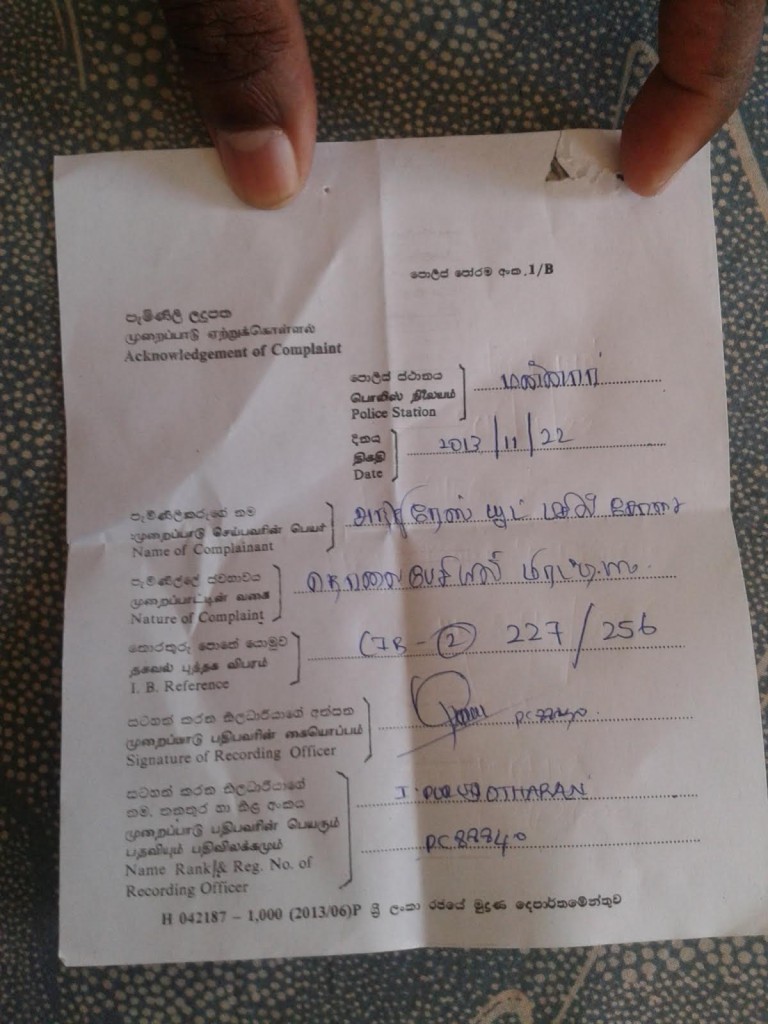 පොලිස් පෝරම අංක. 1/B
පැමිණිලි ලදුපත
முறைப்பாடு ஏற்றுக்கொள்ளல்
Acknowledgement of Complaint
පොලිස් ස්ථානය
பொலிஸ் நிலையம்
Police Station
மன்னார்
දිනය
திகதி
Date
2013/11/22
පැමිණිලිකරුගේ නම
முறைப்பாடு செய்பவரின் பெயர்
Name of Complainant
පැමිණිල්ලේ ස්වභාවය
முறைப்பாட்டின் வகை
Nature of Complaint
தொலைபேசியில் மிரட்டியமை
තොරතුරු පොතේ යොමුව
தகவல் புத்தக விபரம்
I. B. Reference
CIB - 2 227/256
සටහන් කරන නිලධාරියාගේ අත්සන
முறைப்பாடு பதிபவரின் கையொப்பம்
Signature of Recording Officer
සටහන් කරන නිලධාරියාගේ
නම, තනතුර හා නිල අංකය
முறைப்பாடு பதிபவரின் பெயரும்
பதவியும் பதிவிலக்கமும்
Name Rank & Reg. No. of
Recording Officer
H 042187 – 1,000 (2013/06)P ශ්‍රී ලංකා රජයේ මුද්‍රණ දෙපාර්තමේන්තුව